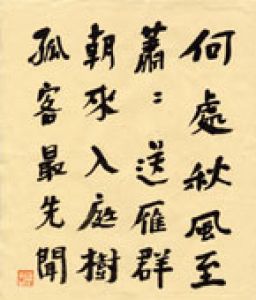 何處秋風至
蕭〻送雁群
朝来入庭樹
孤客最先聞